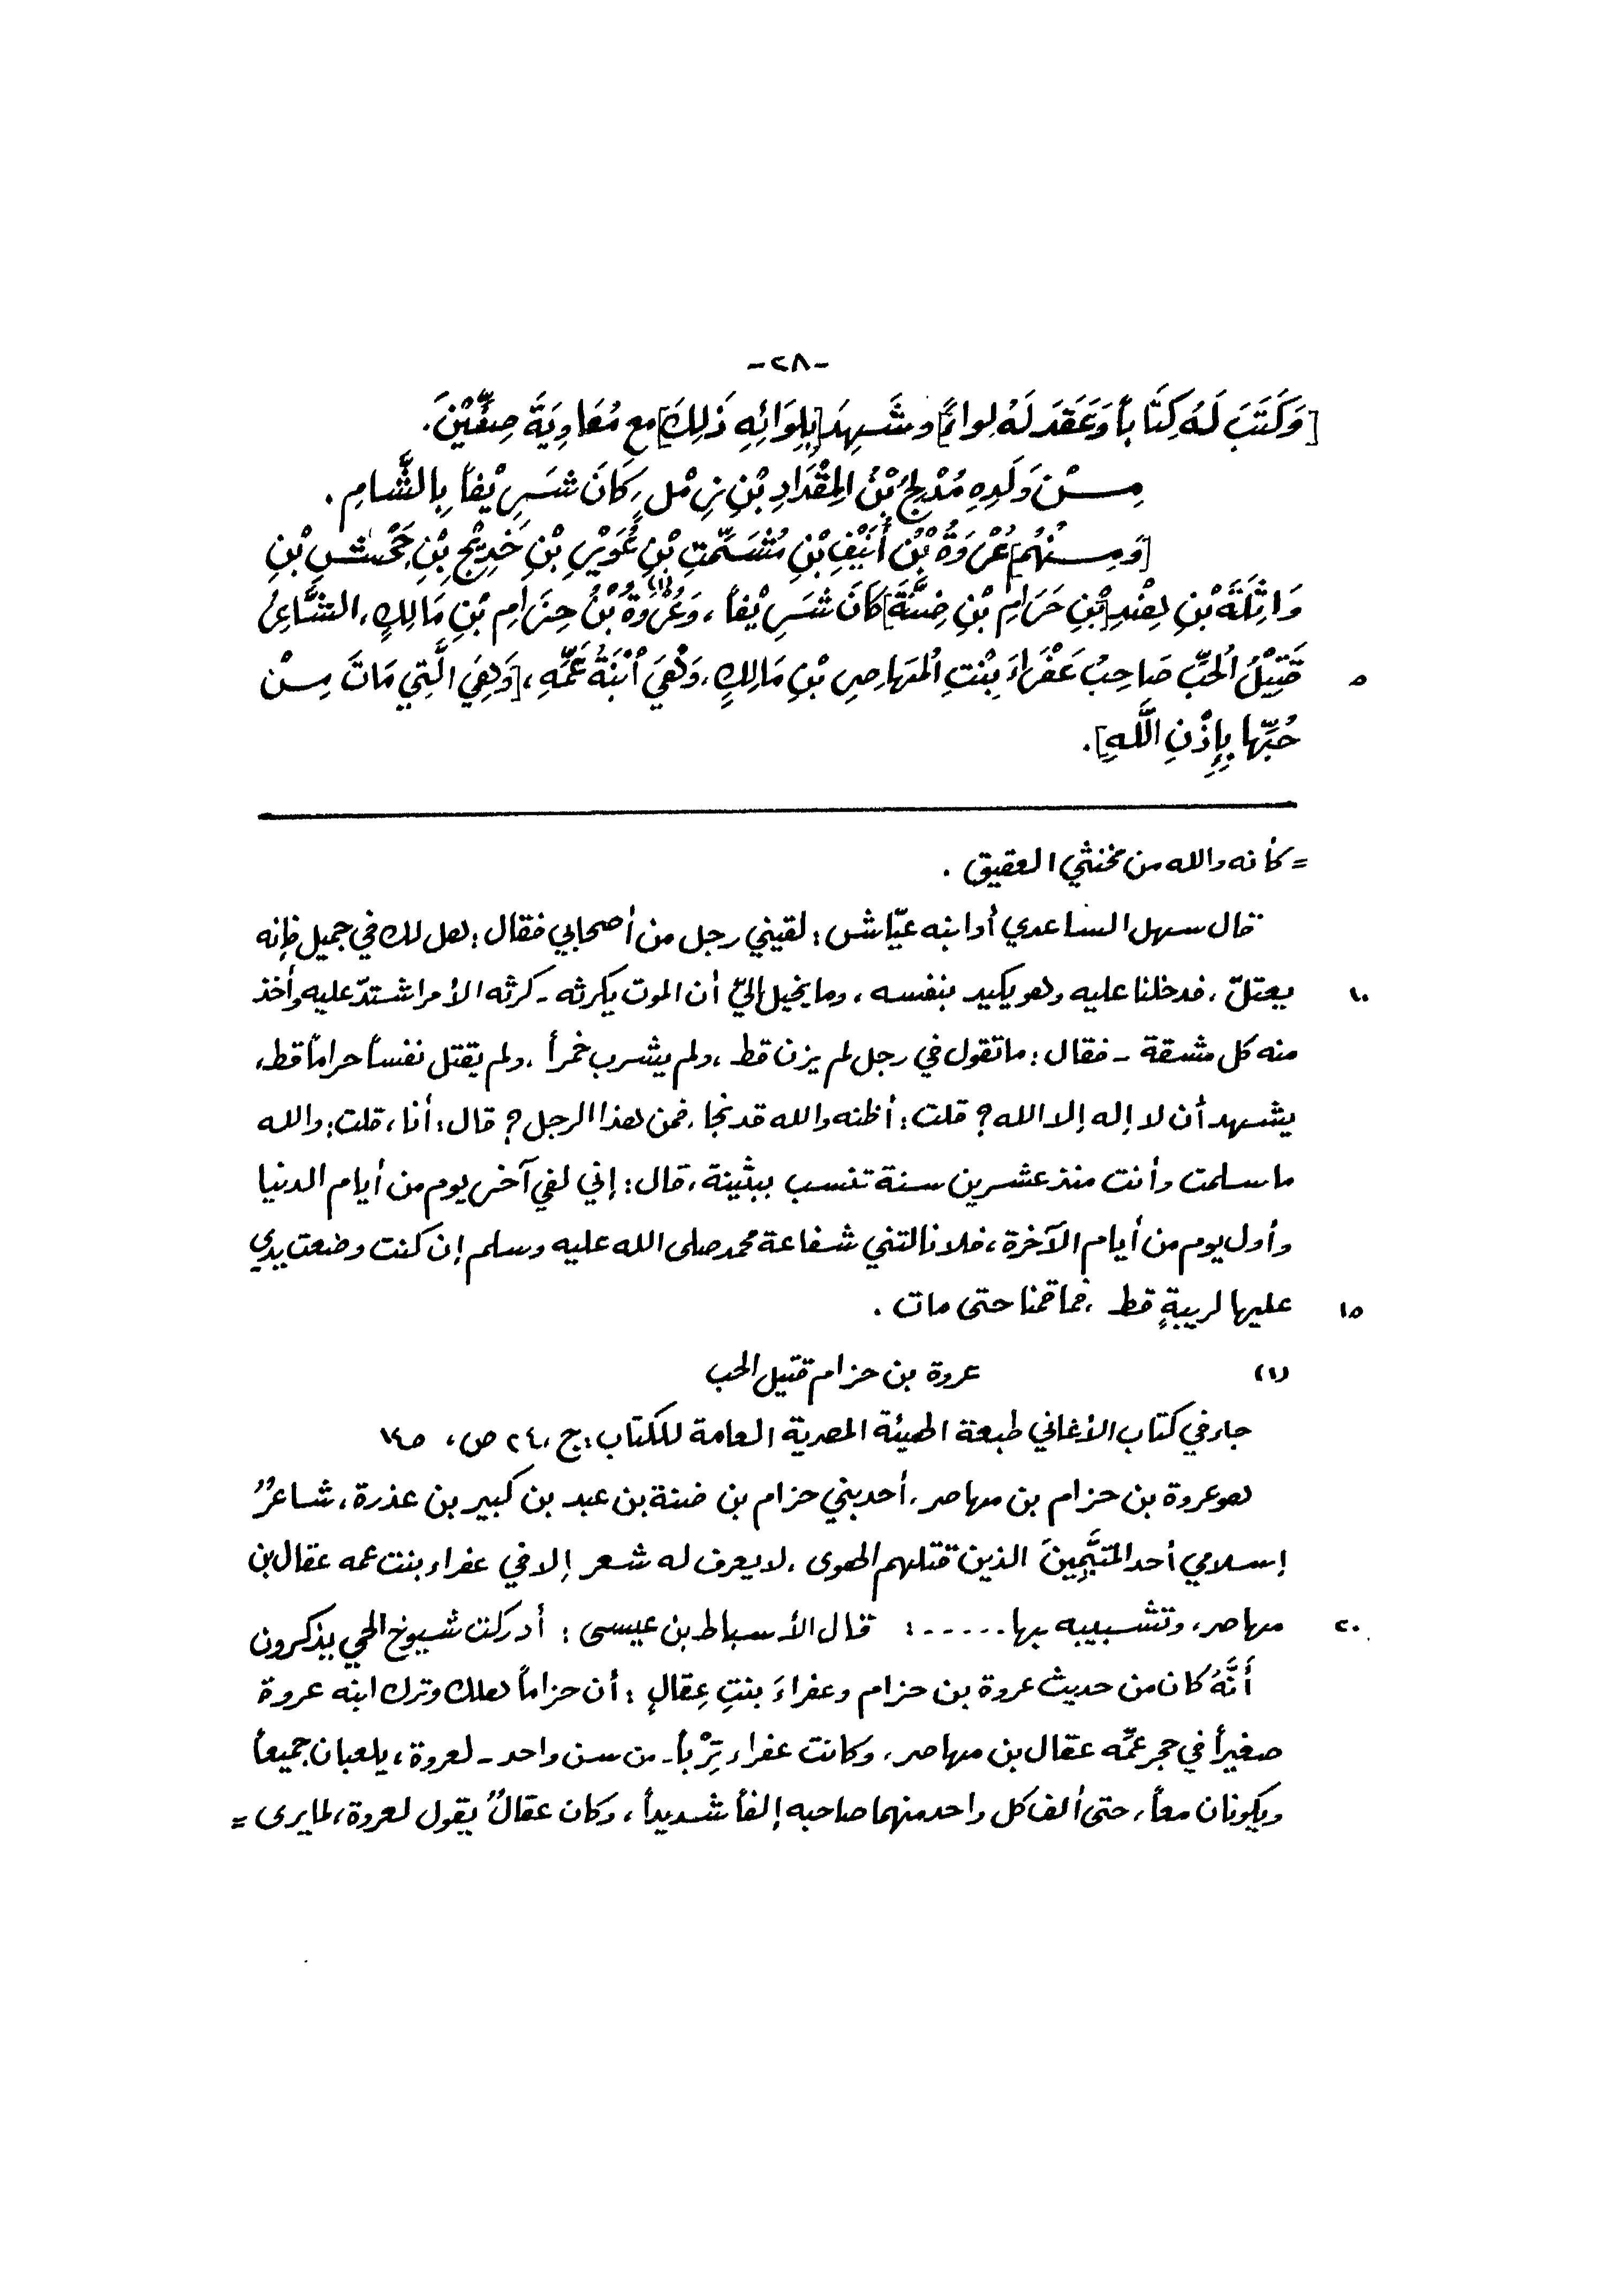 -٢٨-
[وَكَتَبَ لَهُ كِتَاباً وَعَقَدَ لَهُ لِواءً] وشَهِدَ [بِلِوَائِهِ ذَلِكَ] مع مُعَاوِيَةَ صِفِّيْنَ.
مِنْ وَلَدِهِ مُدْلِجُ بْنُ المِقْدَادِ بْنِ زِمْلٍ، كَانَ شَرِيْفاً بِالشَّامِ.
[وَمِنْهُم] عُرْوَةُ بْنُ أُنَيْفِ بْنِ مُشَمِّتِ بْنِ عُوَيْرِ بْنِ خَدِيْجِ بْنِ جَحْشِ بْنِ
وَاثِلَةَ بْنِ هِنْدِ [بْنِ حَرَامِ بْنِ ضِنَّةَ] كَانَ شَرِيْفاً، وَعُرْوَةُ (١) بْنُ حِزَامِ بْنِ مَالِكٍ، الشَّاعِرُ
٥ قَتِيْلُ الُحبِّ صَاحِبُ عَفْرَاءَ بِنْتِ الُمهَاصِرِ بْنِ مَالِكٍ، وَهْيَ اُبْنَةُ عَمِّهِ، [وَهِيَ الَّتِي مَاتَ مِنْ
حُبِّها بِإِذْنِ اللَّهِ].
= كأنه والله من مخنثي العقيق .
قال سهل الساعدي أو ابنه عيّاش : لقيني رجل من أصحابي فقال : هل لك في جميل فإنه
١٠ يعتلّ ، فدخلنا عليه وهو يكيد بنفسه ، وما يخيل إليّ أن الموت يكرثه - كرثه الأمر اشتدّ عليه وأخذ
منه كل مشقة - فقال : ما تقول في رجل لم يزن قط ، ولم يشرب خمراً ، ولم يقتل نفساً حراماً قط،
يشهد أن لا إله إلا الله ؟ قلت : أظنه والله قد نجا ، فمن هذا الرجل ؟ قال : أنا ، قلت : والله
ما سلمت وأنت منذ عشرين سنة تنسب ببثينة ، قال : إني لفي آخر يوم من أيام الدنيا
وأول يوم من أيام الآخرة ، فلا نالتني شفاعة محمد صلى الله عليه وسلم إن كنت وضعت يدي
١٥ عليها لريبةٍ قط ، فما قمنا حتى مات .
(١) عروة بن حزام قتيل الحب
جاء في كتاب الأغاني طبعة الهيئة المصرية العامة للكتاب : ج ، ٢٤ ص ، ١٤٥
هو عروة بن حزام بن مهاصر ، أحد بني حزام بن ضنة بن عبد بن كبير بن عذرة ، شاعرٌ
إسلامي أحد المتَيَّمِينَ الذين قتلهم الهوى ، لا يعرف له شعر إلا في عفراء بنت عمه عقال بن
٢٠ مهاصر ، وتشبيبه بها ...... : قال الأسباط بن عيسى : أدركت شيوخ الحي يذكرون
أَنَّهُ كان من حديث عروة بن حزام وعفراءَ بنتِ عِقالٍ : أن حزاماً هلك وترك ابنه عروة
صغيراً في حجر عمِّه عقال بن مهاصر ، وكانت عفراء تِرْباً - من سن واحد - لعروة ، يلعبان جميعاً
ويكونان معاً ، حتى ألف كل واحد منهما صاحبه إلفاً شديداً ، وكان عقالٌ يقول لعروة ، لما يرى =